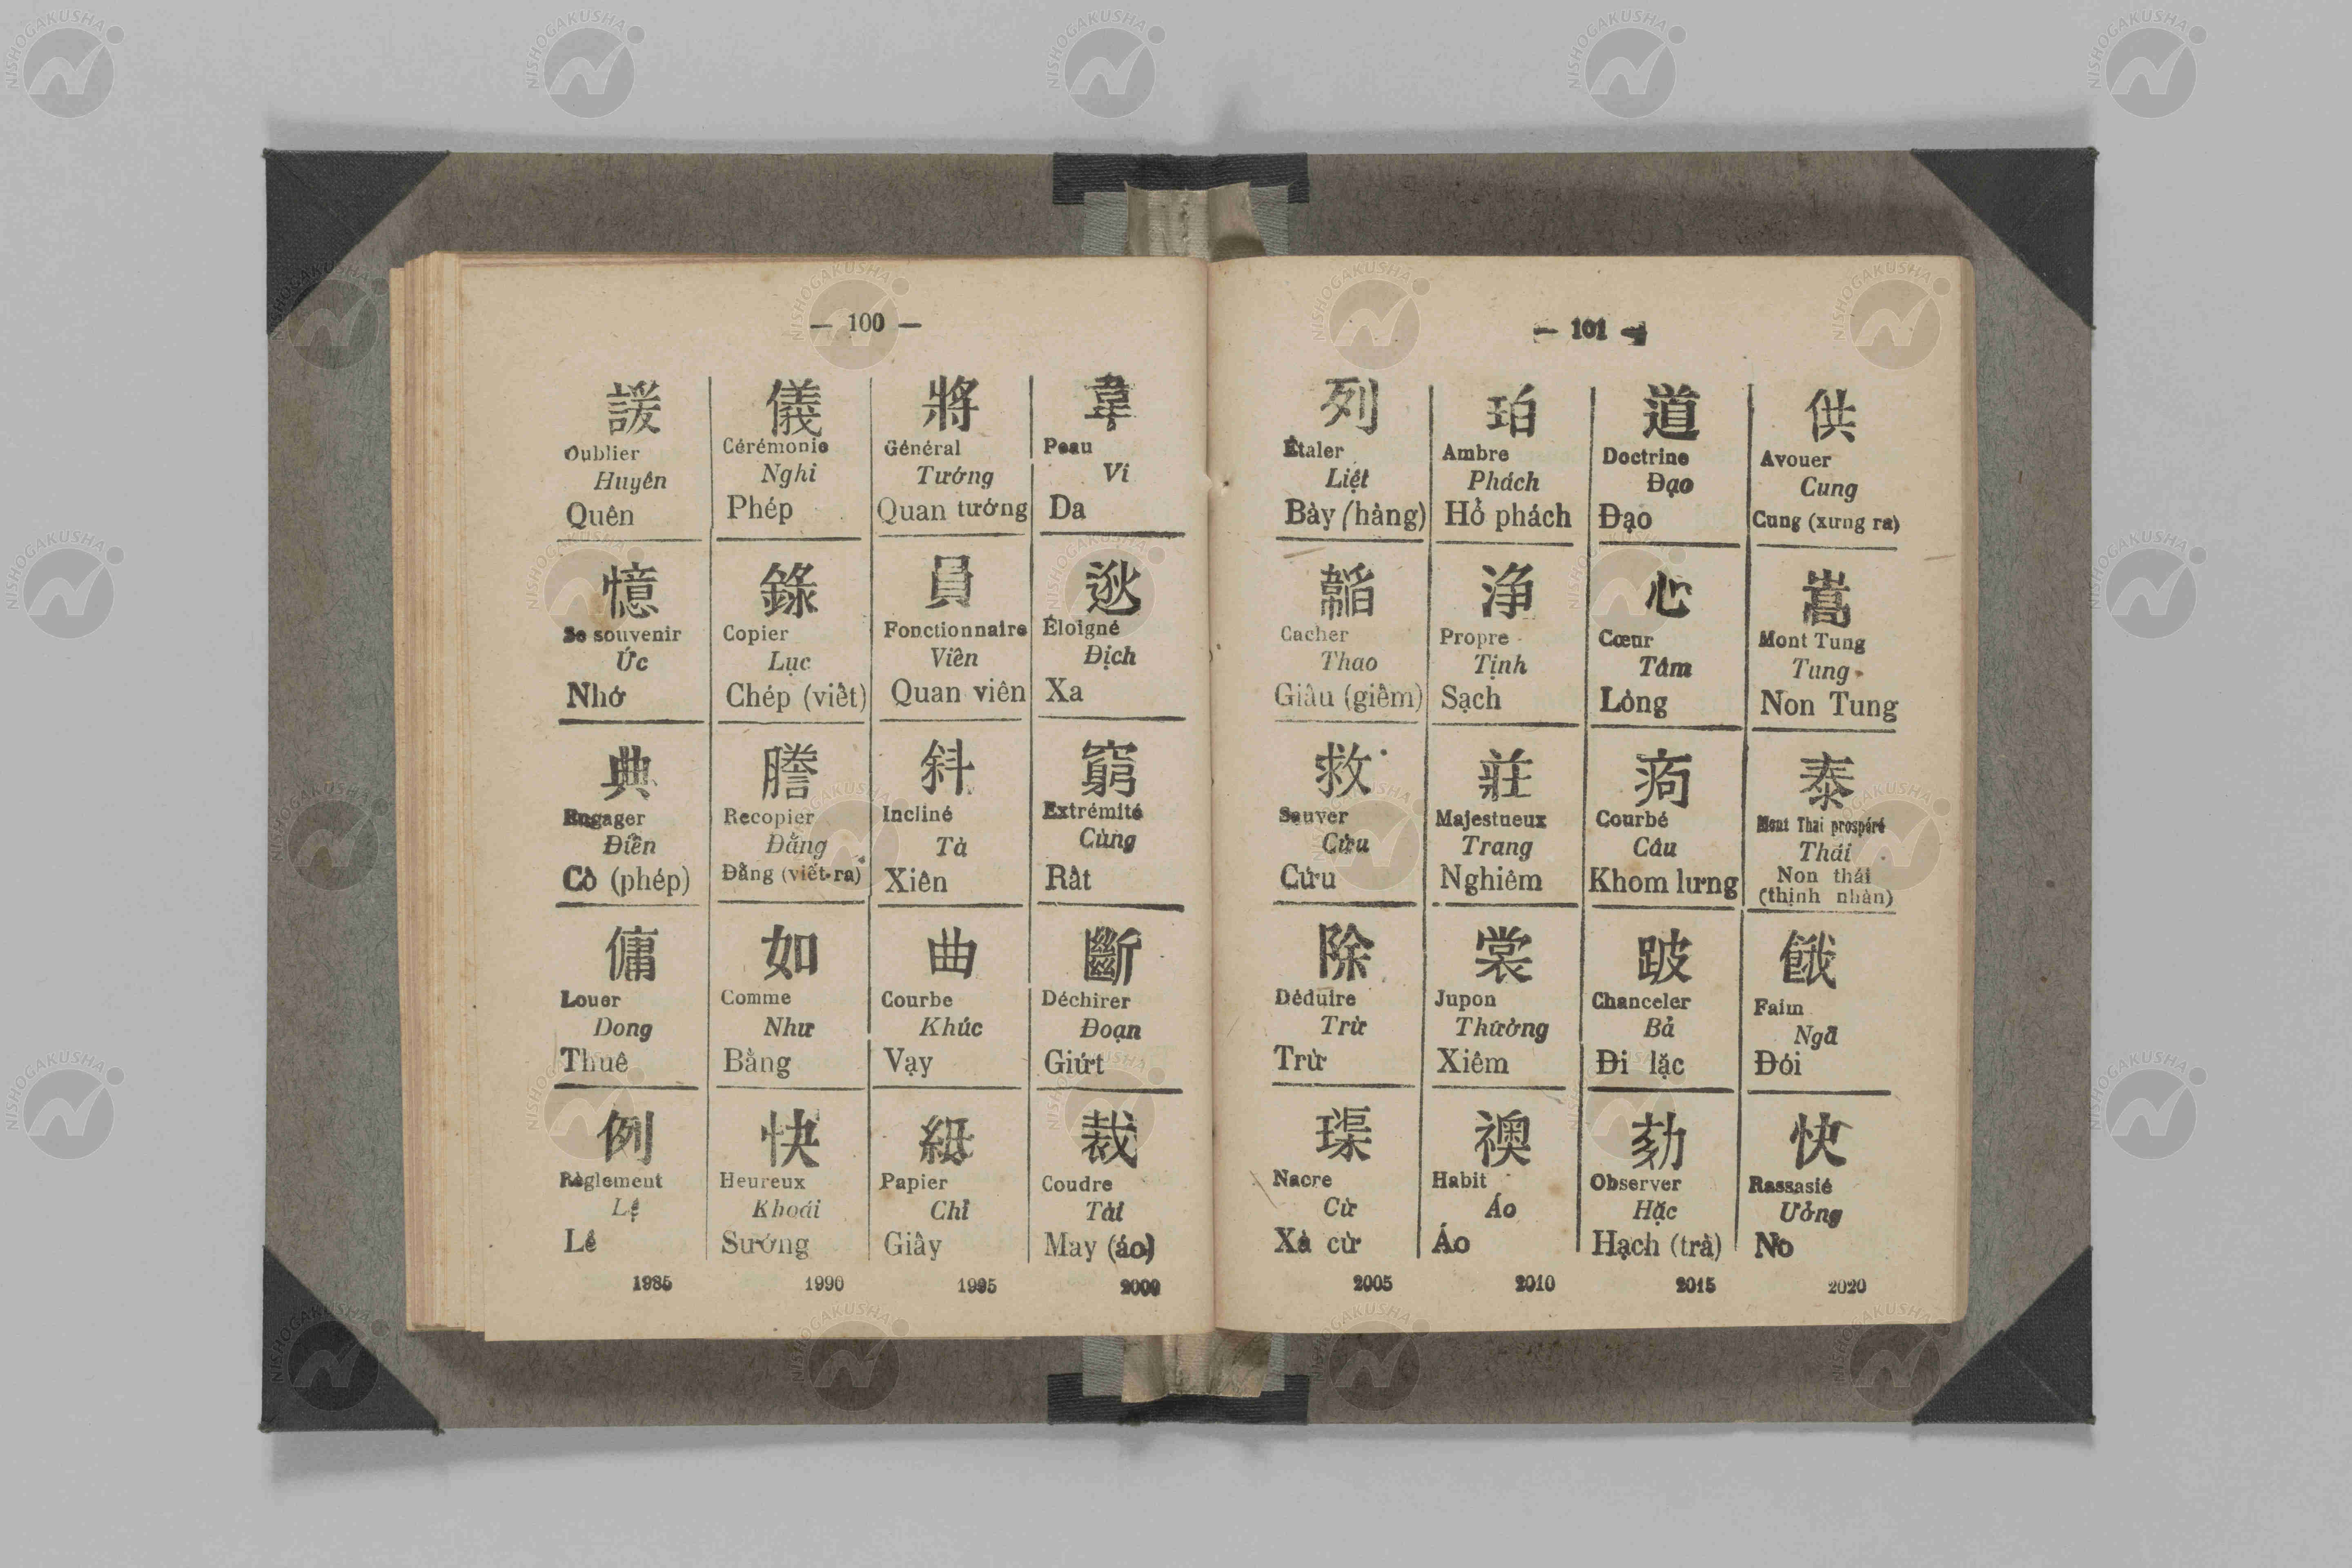 — 100 —
諼
Oublier
Huyên
Quên
憶
Se souvenir
Ức
Nhớ
典
Engager
Điển
Cồ (phép)
傭
Louer
Dong
Thuê
例
Règlement
Lệ
Lề
1985
儀
Cérémonie
Nghi
Phép
錄
Copier
Lục
Chép (viết)
謄
Recopier
Đằng
Đằng (viết-ra)
如
Comme
Như
Bằng
快
Heureux
Khoái
Sướng
1990
將
Général
Tướng
Quan tướng
員
Fonctionnaire
Viên
Quan viên
斜
Incliné
Tà
Xiên
曲
Courbe
Khúc
Vạy
紙
Papier
Chỉ
Giấy
1995
韋
Peau
Vi
Da
逖
Éloigné
Địch
Xa
窮
Extrémité
Cùng
Rất
斷
Déchirer
Đoạn
Giứt
裁
Coudre
Tài
May (áo)
2000
— 101 —
列
Étaler
Liệt
Bày (hàng)
韜
Cacher
Thao
Giấu (giếm)
救
Sauver
Cứu
Cứu
除
Déduire
Trừ
Trừ
璖
Nacre
Cừ
Xà cừ
2005
珀
Ambre
Phách
Hổ phách
淨
Propre
Tịnh
Sạch
莊
Majestueux
Trang
Nghiêm
裳
Jupon
Thường
Xiêm
襖
Habit
Áo
Áo
2010
道
Doctrine
Đạo
Đạo
心
Cœur
Tâm
Lòng
痀
Courbé
Câu
Khom lưng
跛
Chanceler
Bả
Đi lặc
劾
Observer
Hặc
Hạch (trả)
2015
供
Avouer
Cung
Cung (xưng ra)
嵩
Mont Tung
Tung
Non Tung
泰
Mont Thai prospéré
Thái
Non thái
(thịnh nhàn)
餓
Faim
Ngã
Đói
怏
Rassasié
Ưởng
No
2020
NISHOGAKUSHA